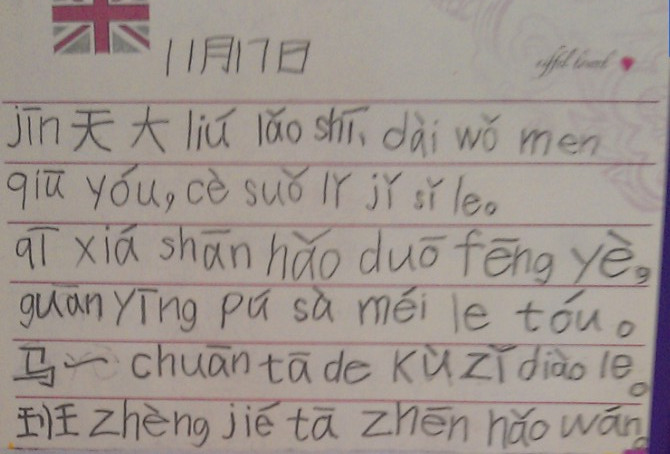 11月17日
jīn天大liú lǎo shī、dài wǒ men
qiū yóu,cè suǒ lǐ jǐ sǐ le。
qī xiá shān hǎo duō fēng yè,
guān yīng pú sà méi le tóu。
马一 chuān tā de kù zǐ diào le。
王zhèng jié tā zhēn hǎo wán。